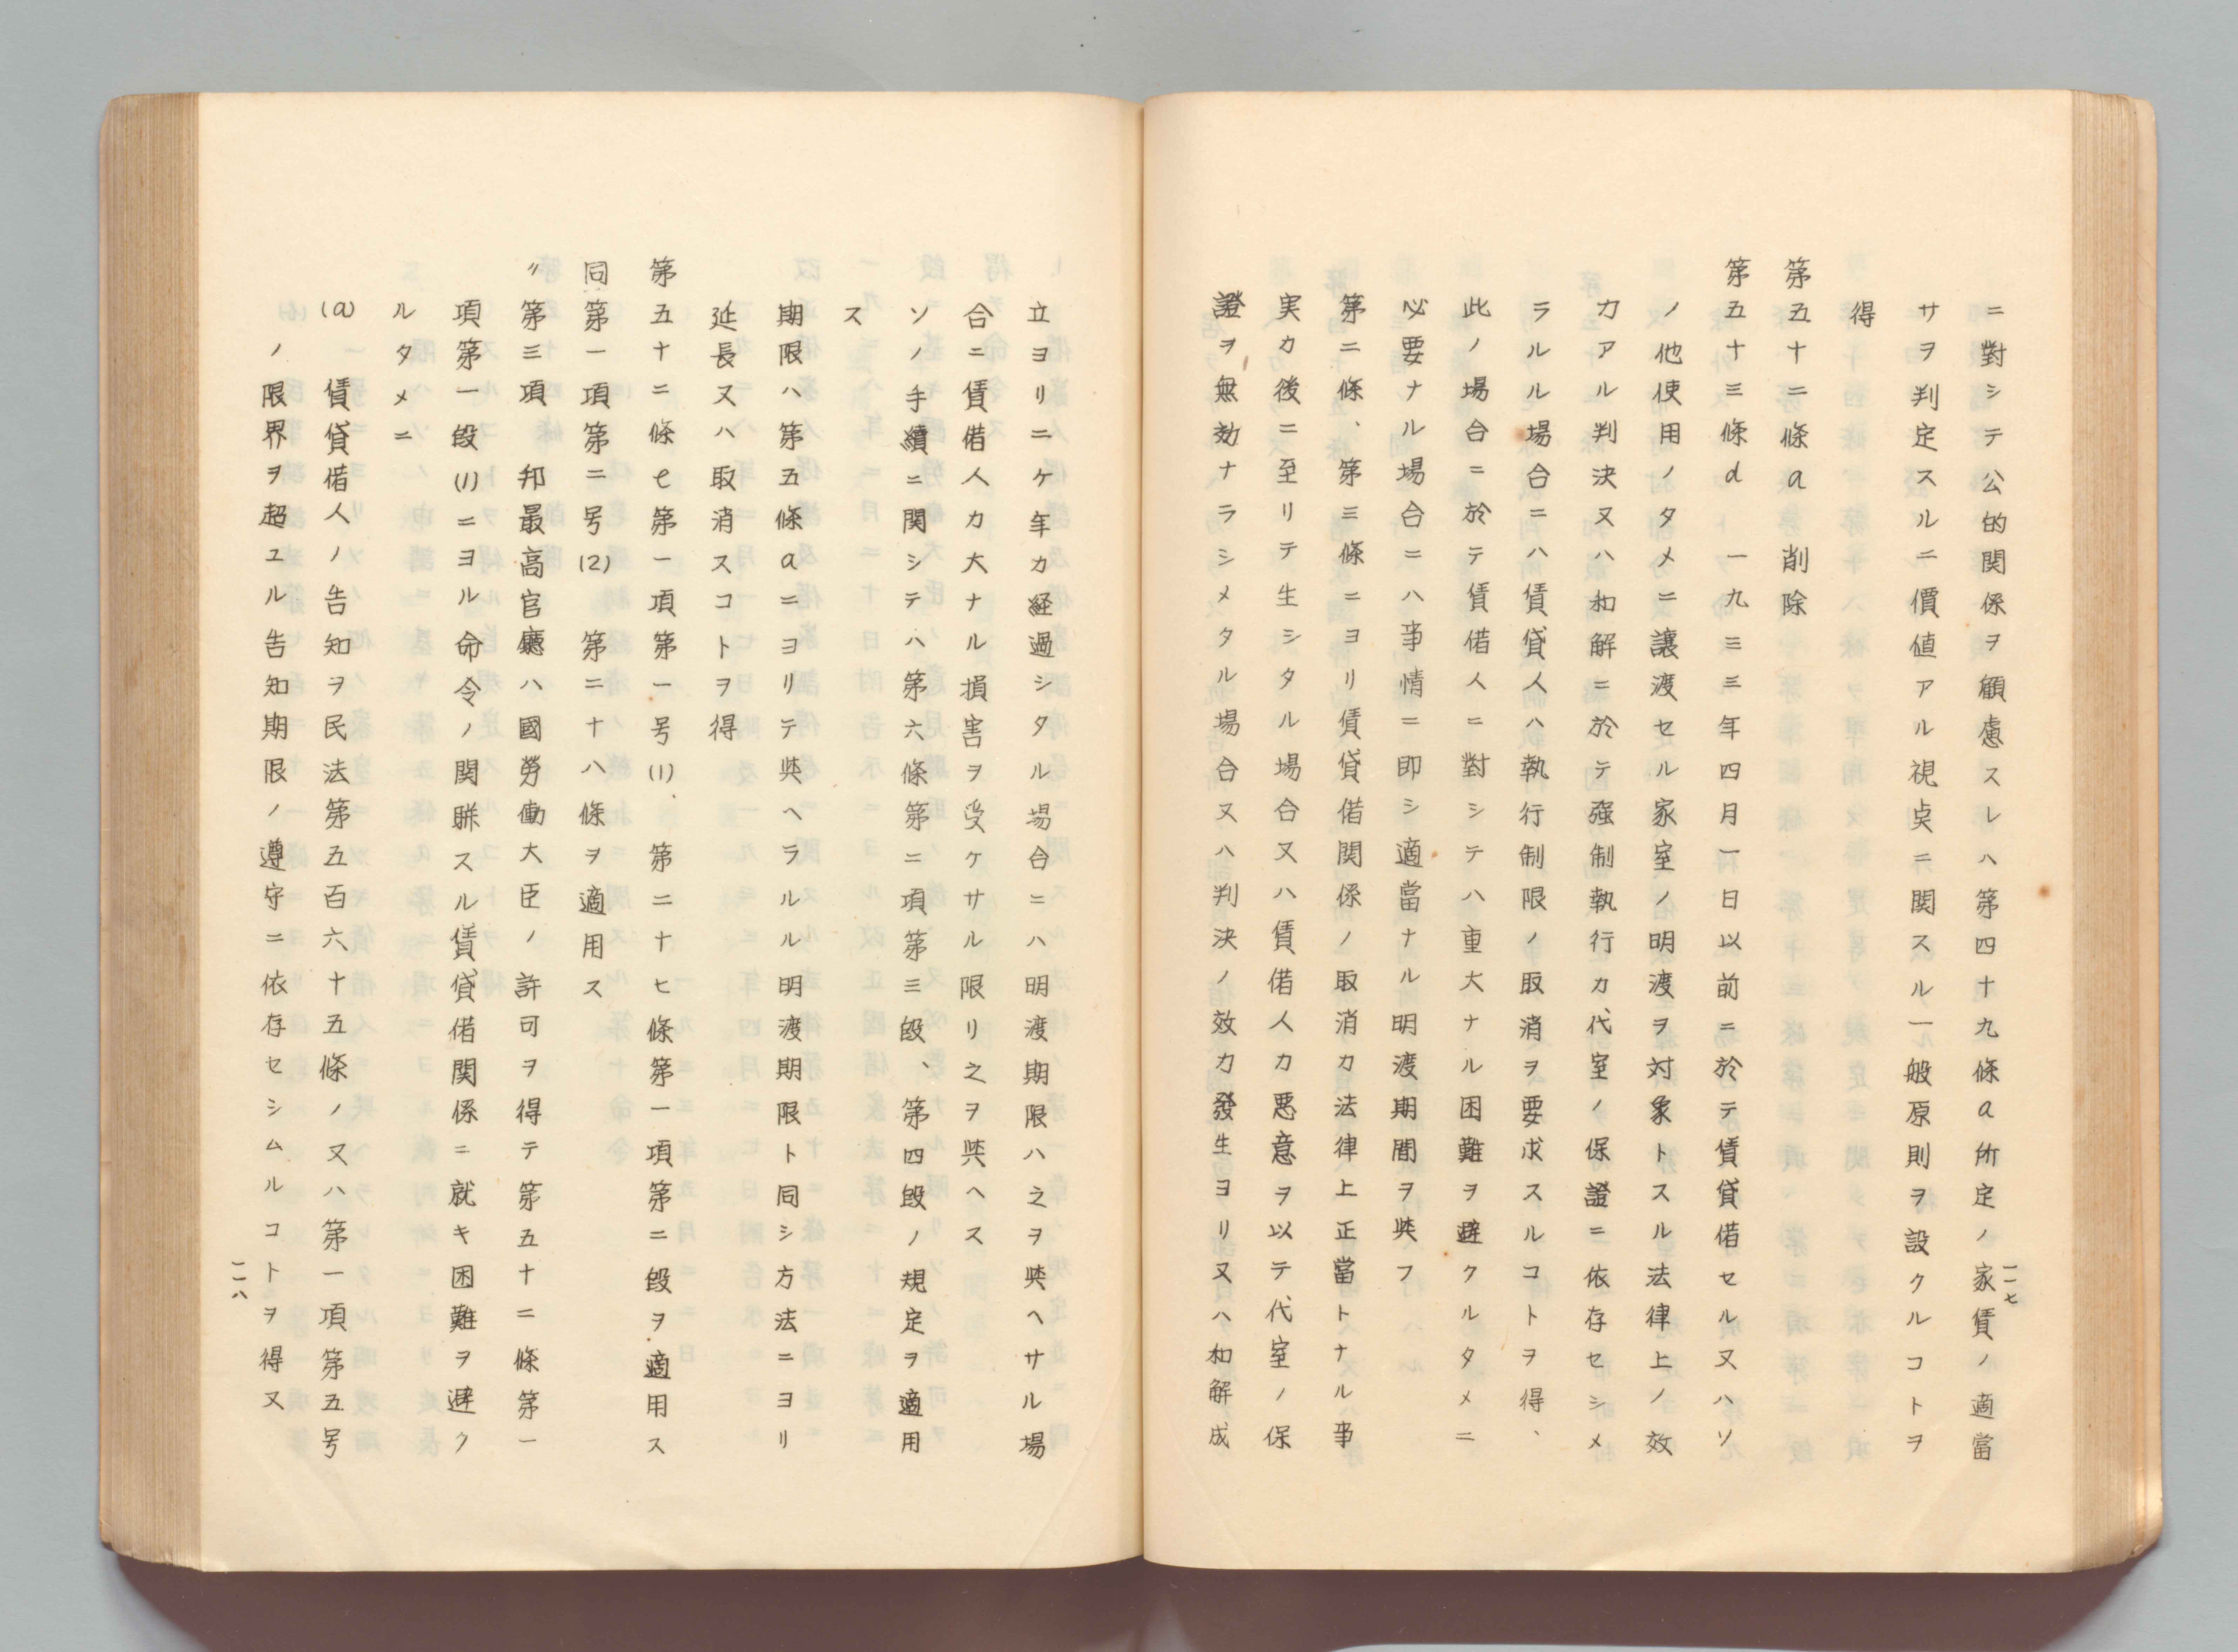 ニ對シテ公的関係ヲ顧慮スレハ第四十九條a所定ノ家賃ノ適當
サヲ判定スルニ價値アル視奌ニ関スル一般原則ヲ設クルコトヲ
得
第五十二條a 削除
第五十三條d 一九三三年四月一日以前ニ於テ賃貸借セル又ハソ
ノ他使用ノタメニ讓渡セル家室ノ明渡ヲ対象トスル法律上ノ效
力アル判決又ハ和解ニ於テ强制執行カ代室ノ保證ニ依存セシメ
ラルル場合ニハ賃貸人ハ執行制限ノ取消ヲ要求スルコトヲ得、
此ノ場合ニ於テ賃借人ニ對シテハ重大ナル困難ヲ避クルタメニ
必要ナル場合ニハ事情ニ即シ適當ナル明渡期間ヲ與フ
第二條、第三條ニヨリ賃貸借関係ノ取消カ法律上正當トナル事
実カ後ニ至リテ生シタル場合又ハ賃借人カ悪意ヲ以テ代室ノ保
證ヲ無効ナラシメタル場合又ハ判決ノ效力發生ヨリ又ハ和解成
一一七
立ヨリ二ケ年カ経過シタル場合ニハ明渡期限ハ之ヲ與ヘサル場
合ニ賃借人カ大ナル損害ヲ受ケサル限リ之ヲ與ヘス
ソノ手續ニ関シテハ第六條第二項第三段、第四段ノ規定ヲ適用
ス
期限ハ第五條aニヨリテ與ヘラルル明渡期限ト同シ方法ニヨリ
延長又ハ取消スコトヲ得
第五十二條e第一項第一号(1)、第二十七條第一項第二段ヲ適用ス
同第一項第二号(2) 第二十八條ヲ適用ス
〃第三項 邦最高官廳ハ國勞働大臣ノ許可ヲ得テ第五十二條第一
項第一段(1)ニヨル命令ノ関聯スル賃貸借関係ニ就キ困難ヲ避ク
ルタメニ
(a) 賃貸借人ノ告知ヲ民法第五百六十五條ノ又ハ第一項第五号
ノ限界ヲ超ユル告知期限ノ遵守ニ依存セシムルコトヲ得又
一一八